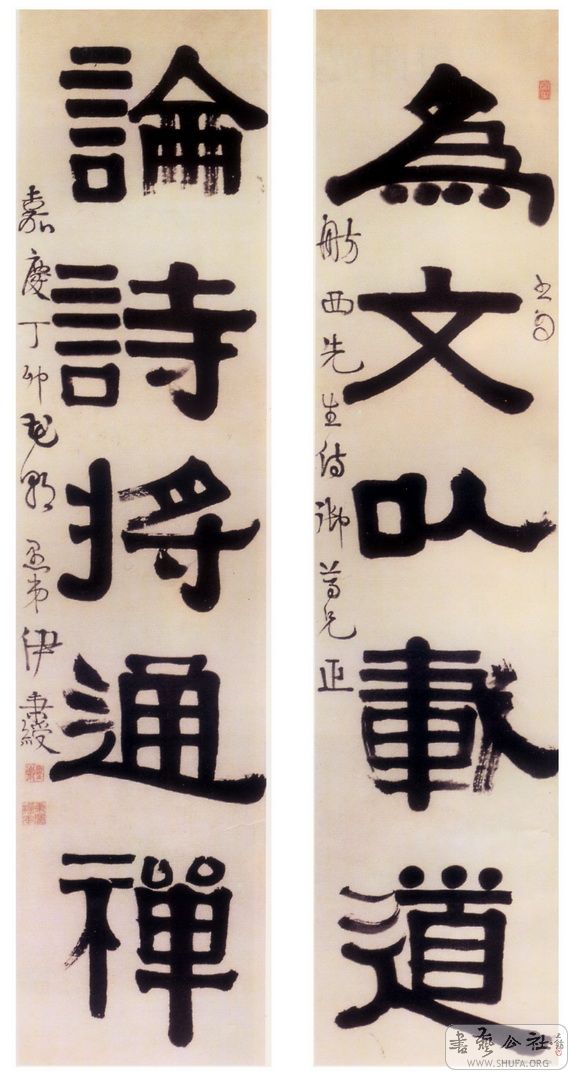 為文以載道
舫西先生侍御尊兄正
論詩將通禪
嘉慶丁卯花朝愚弟伊秉綬
書藝公社
WWW.SHUFA.ORG